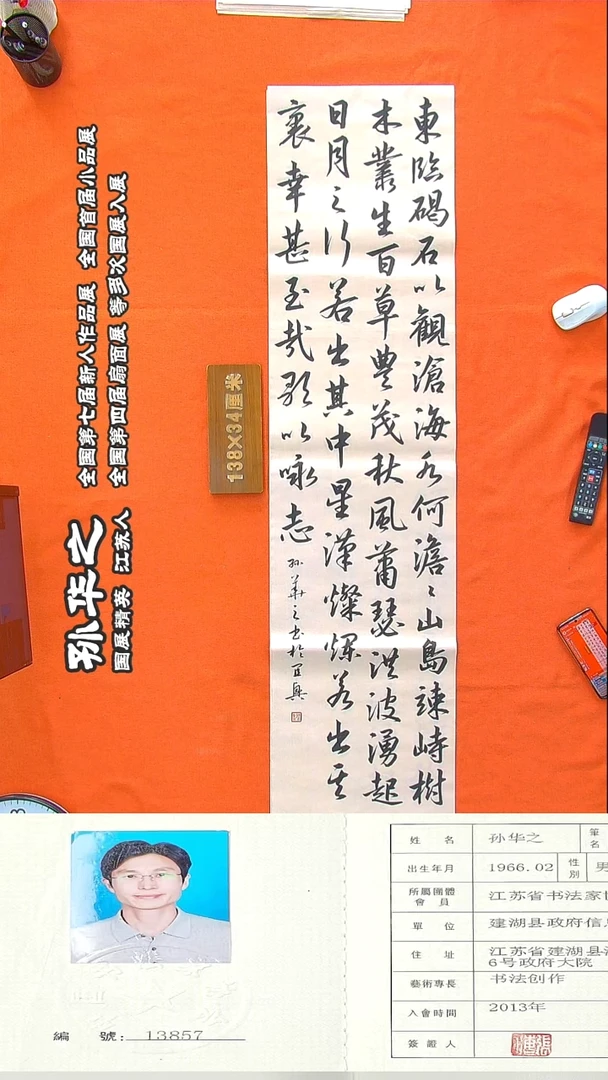 東臨碣石以觀滄海水何澹〻山島竦峙樹
木叢生百草豐茂秋風蕭瑟洪波湧起
日月之行若出其中星漢燦爛若出其
裏幸甚至哉歌以咏志
孙華之书於宜興
138×34厘米
孙华之
国展精英 江苏人
全国第七届新人作品展 全国首届小品展
全国第四届扇面展 等多次国展入展
編 號: 13857
姓 名 孙华之 筆名
出生年月 1966.02 性別 男
所屬團體會員 江苏省书法家
單 位 建湖县政府信
住 址 江苏省建湖县
6号政府大院
藝術專長 书法创作
入會時間 2013年
簽證人